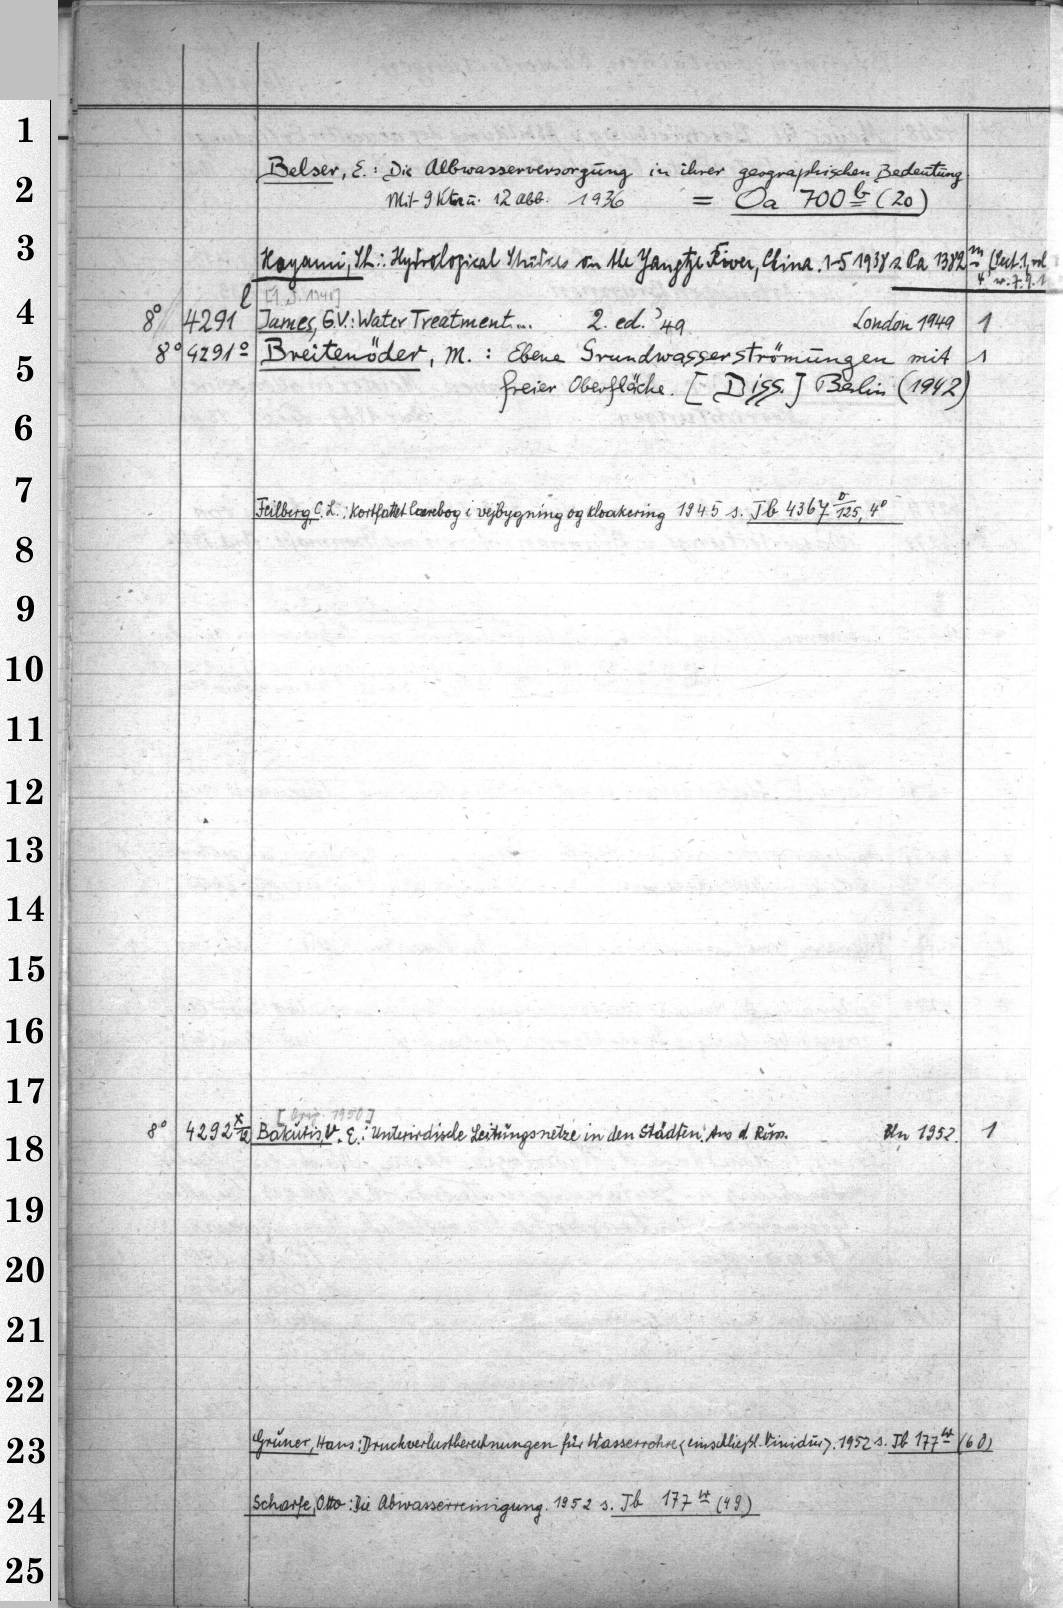 1
2
3
4
5
6
7
8
9
10
11
12
13
14
15
16
17
18
19
20
21
22
23
24
25
Belser, E.: Die Albwasserversorgung in ihrer geographischen Bedeutung
Mit 9 Ktn u. 12 Abb. 1936 = Oa 700 b (20)
Hayami, Sh.: Hydrological Studies on the Yangtze River, China. 1-5 1938 s Pa 1382 m
8° 4291 l James, G.V.: Water Treatment... 2. ed. '49 London 1949 1
8° 4291 o Breitenöder, M.: Ebene Grundwasserströmungen mit 1
freier Oberfläche. [Diss.] Berlin (1942)
Feilberg, C. L.: Kortfattet Lærebog i vejbygning og kloakering 1945 s. Jb 4367 o/125, 4°
[Orig. 1950]
8° 4292 x/12 Bakutis, V. E.: Unterirdische Leitungsnetze in den Städten. Aus d. Russ. Bln 1952. 1
Grüner, Hans: Druckverlustberechnungen für Wasserrohre (einschließl. Vinidur). 1952 s. Jb 177 w (60)
Scharfe, Otto: Die Abwasserreinigung. 1952 s. Jb 177 w (49)